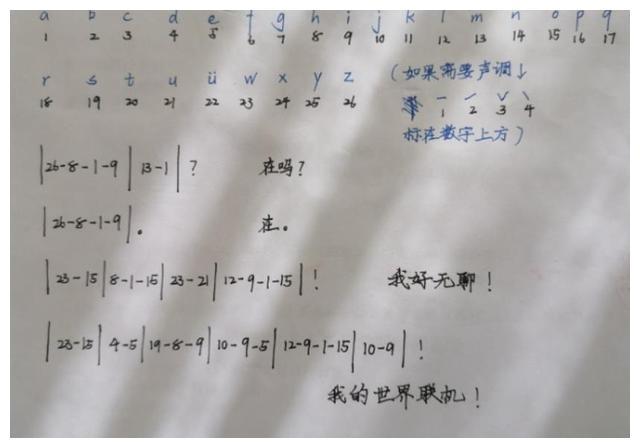 a b c d e f g h i j k l m n o p q
1 2 3 4 5 6 7 8 9 10 11 12 13 14 15 16 17
r s t u ü w x y z (如果需要声调↓
18 19 20 21 22 23 24 25 26 ˉ1 ˊ2 ˇ3 ˋ4
标在数字上方)
|26-8-1-9|13-1|? 在吗?
|26-8-1-9|。 在。
|23-15|8-1-15|23-21|12-9-1-15|! 我好无聊!
|23-15|4-5|19-8-9|10-9-5|12-9-1-15|10-9|!
我的世界联机!